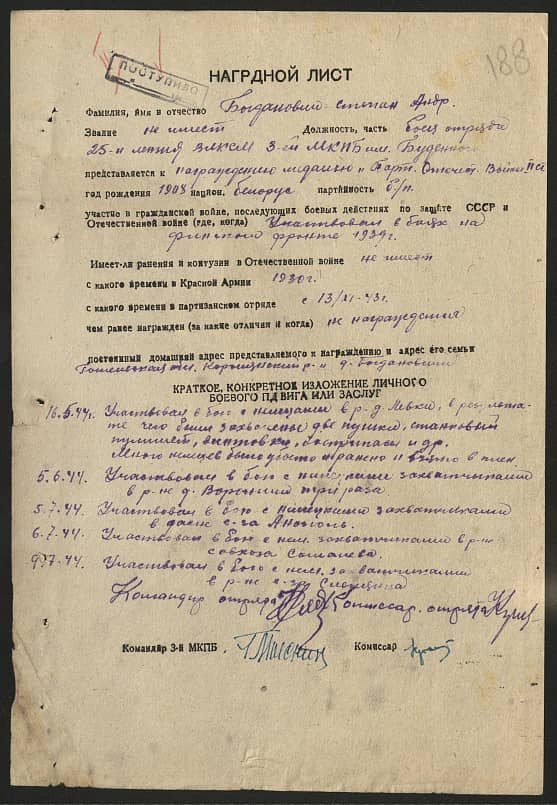 188
ПОСТУПИЛО
НАГРДНОЙ ЛИСТ
Фамилия, ймя в отчество Богданович Степан Андр.
Звание не имеет Должность, часть боец отряда
25-и летия ВЛКСМ 3-ей МКПБ им. Буденного
представляется к награждению медалью "Парт. Отечест. Войны" II ст
год рождения 1908 национ. белорус партийность б/п.
участио в гражданской войне, последующих боевых действиях по защите СССР и
Отечественной войне (где, когда) Участвовал в боях на
финском фронте 1939г.
Имеет-ли ранения и контузии в Отечественной войне не имеет
с какого времени в Красной Армии 1930г.
с какого времени в партизанском отряде с 13/XI-43г.
чем ранее награжден (за какие отличия и когда) не награждался
постоянный домашний адрес представляемого к награждению и адрес его семьи
р-н д. Богдановичи
КРАТКОЕ, КОНКРЕТНОЕ ИЗЛОЖЕНИЕ ЛИЧНОГО
БОЕВОГО ПДВИГА ИЛИ ЗАСЛУГ
16.5.44г. Участвовал в бою с немцами в р. д. Левки, в результа-
те чего были захвачены две пушки, станковый
пулемет, винтовки, боеприпасы и др.
Много немцев было и взято в плен.
5.6.44. Участвовал в бою с немецкими захватчиками
в р-не д. три раза.
5.7.44. Участвовал в бою с немецкими захватчиками
в с-за
6.7-44. Участвовал в бою с нем. захватчиками в р-не
совхоза
9.7-44. Участвовал в бою с нем. захватчиками
в р-не с-за
Командир отряда Комиссар отряда
Командйр 3-й МКПБ Комиссар